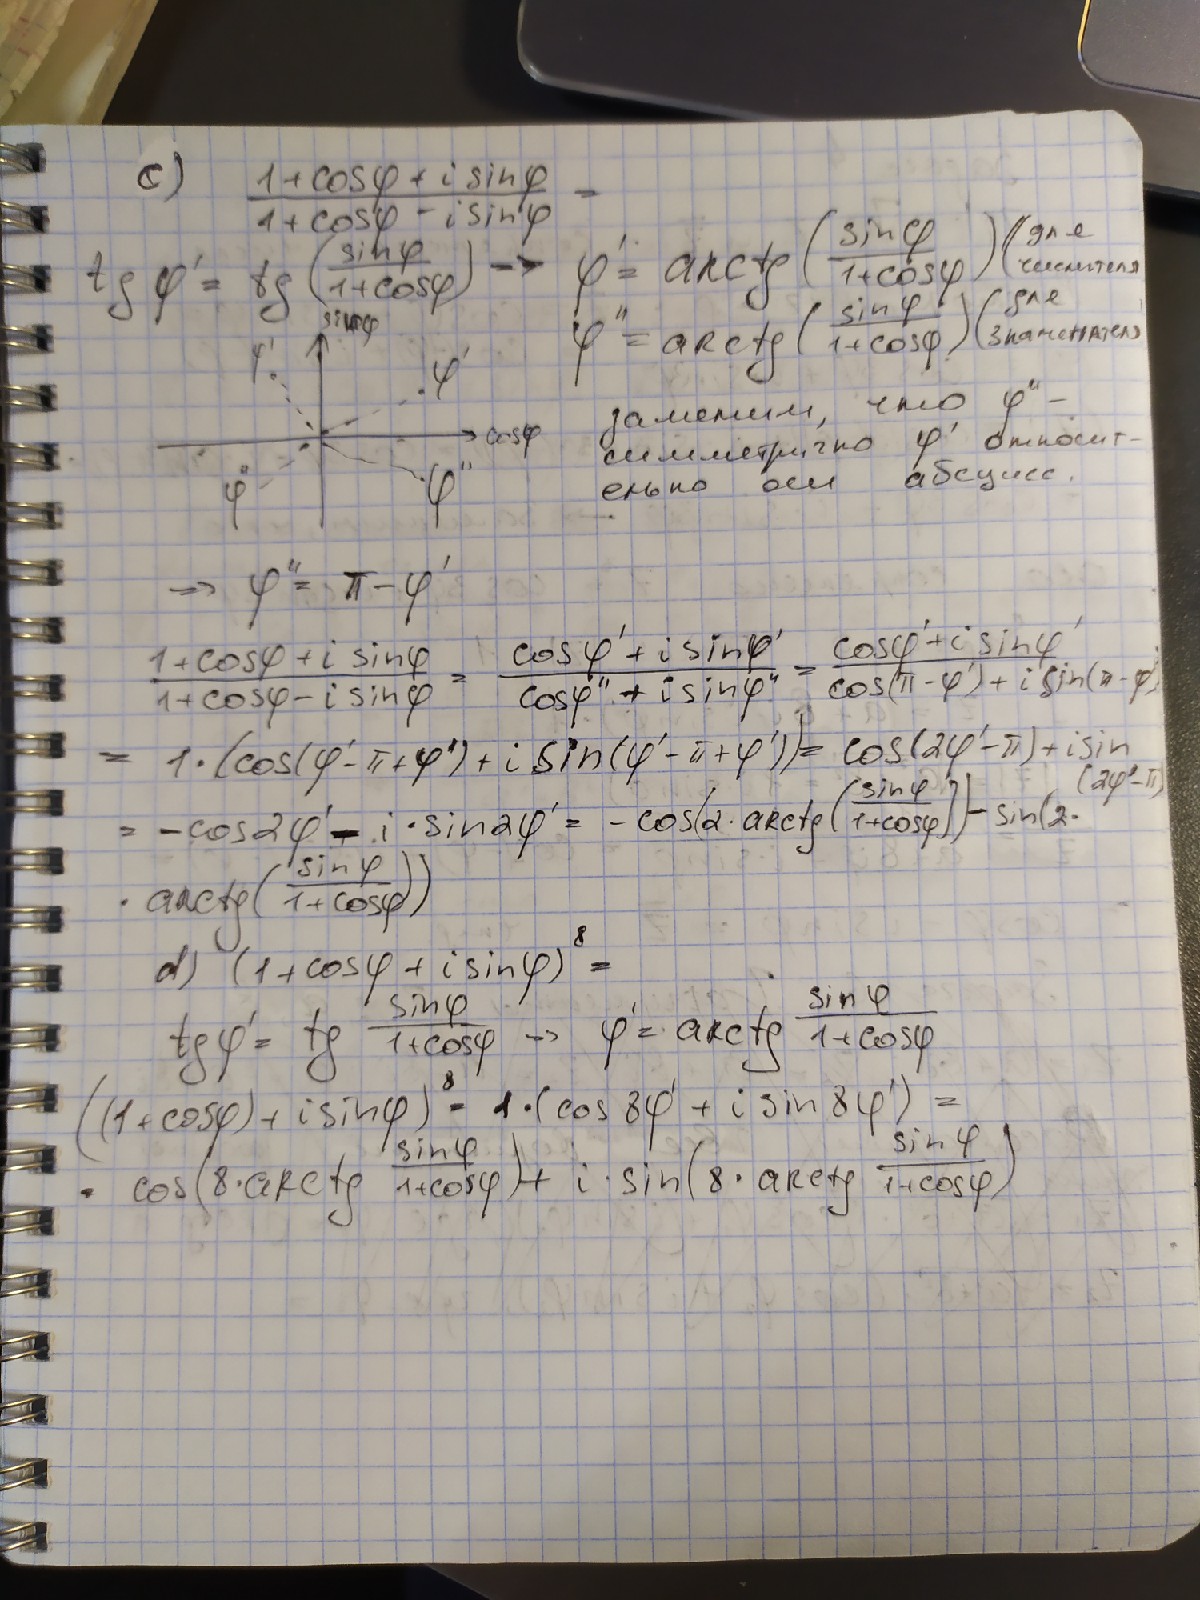 c) (1+cosφ + i sinφ)/(1+cosφ − i sinφ) =
tg φ' = tg (sinφ/(1+cosφ)) → φ' = arctg (sinφ/(1+cosφ)) (для числителя
φ'' = arctg (sinφ/(1+cosφ)) (для знаменателя
sinφ
φ' φ'
cosφ
φ'' φ''
заметим, что φ'' –
симметрично φ' относит-
ельно оси абсцисс.
→ φ'' = π − φ'
(1+cosφ + i sinφ)/(1+cosφ − i sinφ) = (cosφ' + i sinφ')/(cosφ'' + i sinφ'') = (cosφ' + i sinφ')/(cos(π−φ') + i sin(π−φ')
= 1·(cos(φ'−π+φ') + i sin(φ'−π+φ')) = cos(2φ'−π) + i sin
(2φ'−π)
= −cos2φ' − i·sin2φ' = −cos(2·arctg(sinφ/(1+cosφ))) − sin(2·
·arctg(sinφ/(1+cosφ)))
d) (1+cosφ + i sinφ)⁸ =
tg φ' = tg sinφ/(1+cosφ) → φ' = arctg sinφ/(1+cosφ)
((1+cosφ) + i sinφ)⁸ = 1·(cos 8φ' + i sin 8φ') =
· cos(8·arctg sinφ/(1+cosφ)) + i·sin(8·arctg sinφ/(1+cosφ))